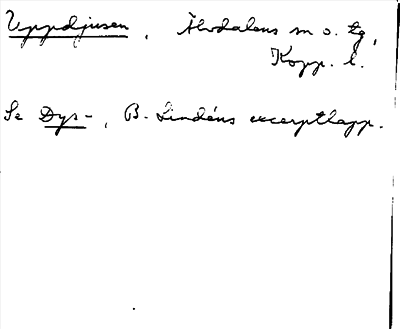 Uppdjusen, Älvdalens m o. tg,
Kopp. l.
Se Dys-, B. Lindéns excerptlapp.